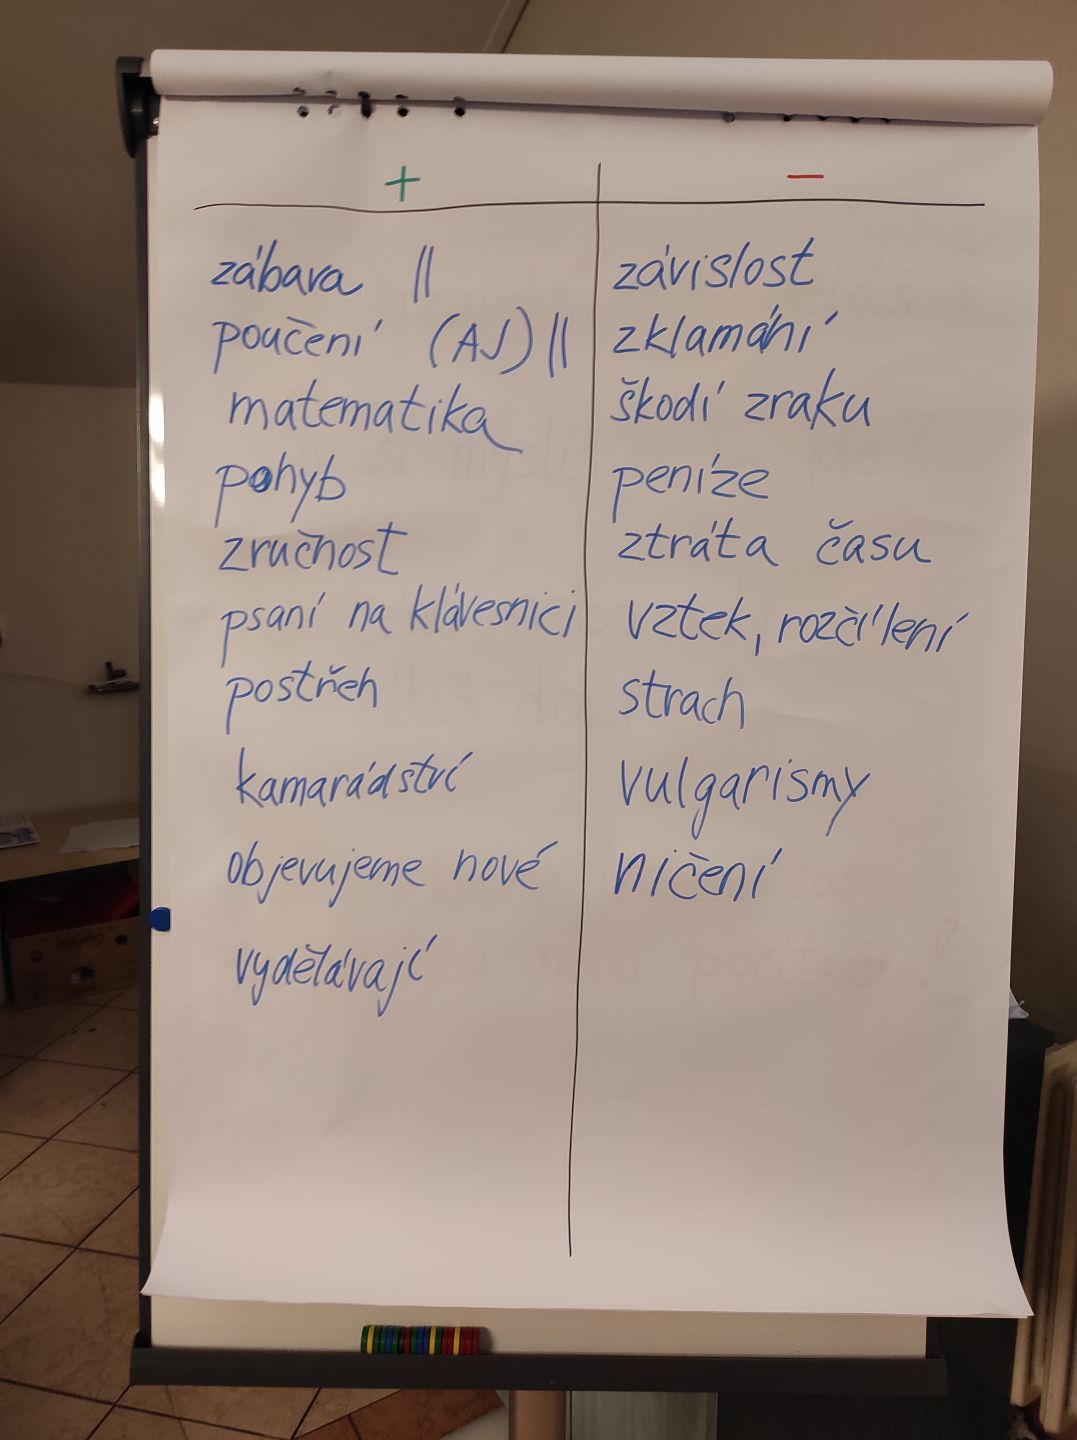 + −
zábava || závislost
poučení (AJ) || zklamání
matematika škodí zraku
pohyb peníze
zručnost ztráta času
psaní na klávesnici vztek, rozčílení
postřeh strach
kamarádství vulgarismy
objevujeme nové ničení
vydělávají